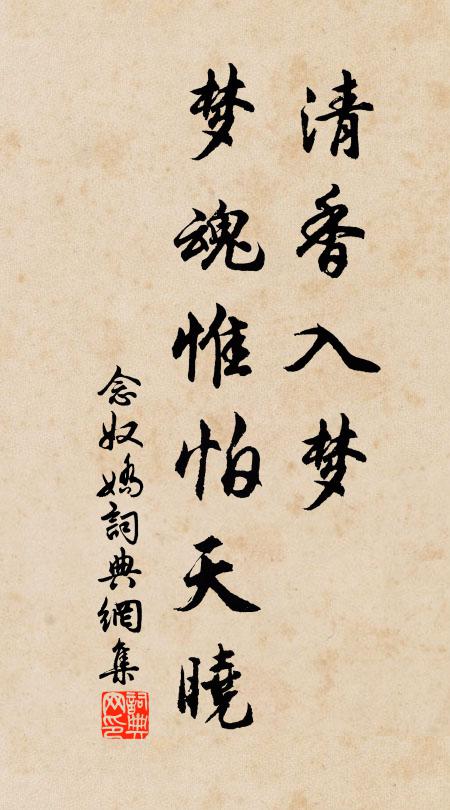 清香入梦
梦魂惟怕天曉
念奴嬌詞典網集
詞典网印